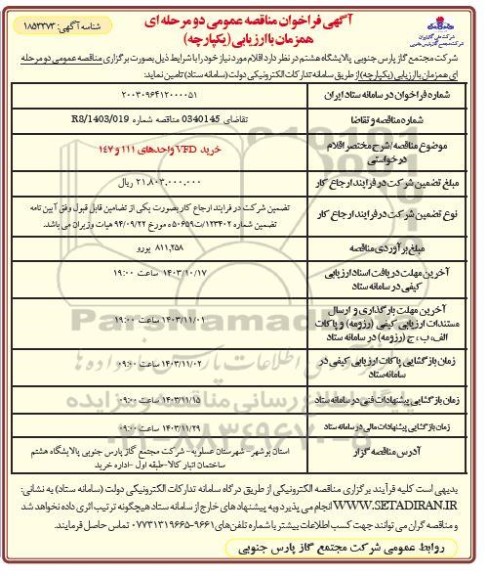 آگهی فراخوان مناقصه عمومی دو مرحله ای
همزمان با ارزیابی (یکپارچه)
شناسه آگهی: ۱۸۵۳۳۷۳
شرکت ملی گاز ایران
شرکت مجتمع گاز پارس جنوبی
شرکت مجتمع گاز پارس جنوبی پالایشگاه هشتم در نظر دارد اقلام مورد نیاز خود را با شرایط ذیل بصورت برگزاری مناقصه عمومی دو مرحله
ای همزمان با ارزیابی (یکپارچه) از طریق سامانه تدارکات الکترونیکی دولت (سامانه ستاد) تامین نماید:
شماره فراخوان در سامانه ستاد ایران
۲۰۰۳۰۹۶۴۱۲۰۰۰۰۵۱
شماره مناقصه و تقاضا
تقاضای 0340145 مناقصه شماره R8/1403/019
موضوع مناقصه/شرح مختصر اقلام
درخواستی
خرید VFD واحدهای ۱۱۱ و ۱۴۷
مبلغ تضمین شرکت در فرایند ارجاع کار
۲۱,۸۰۳,۰۰۰,۰۰۰ ریال
نوع تضمین شرکت در فرایند ارجاع کار
تضمین شرکت در فرایند ارجاع کار بصورت یکی از تضامین قابل قبول وفق آیین نامه
تضمین شماره ۱۲۳۴۰۲/ت۵۰۶۵۹ه مورخ ۹۴/۰۹/۲۲ هیات وزیران می باشد.
مبلغ برآوردی مناقصه
۸۱۱,۲۵۸ یورو
آخرین مهلت دریافت اسناد ارزیابی
کیفی در سامانه ستاد
۱۴۰۳/۱۰/۱۷ ساعت ۱۹:۰۰
آخرین مهلت بارگذاری و ارسال
مستندات ارزیابی کیفی (رزومه) و پاکات
الف، ب، ج (رزومه) در سامانه ستاد
۱۴۰۳/۱۱/۰۱ ساعت ۱۹:۰۰
زمان بازگشایی پاکات ارزیابی کیفی در
سامانه ستاد
۱۴۰۳/۱۱/۰۲ ساعت ۰۹:۰۰
زمان بازگشایی پیشنهادات فنی در سامانه ستاد
۱۴۰۳/۱۱/۱۵ ساعت ۰۹:۰۰
زمان بازگشایی پیشنهادات مالی در سامانه ستاد
۱۴۰۳/۱۱/۲۹ ساعت ۰۹:۰۰
آدرس مناقصه گزار
استان بوشهر- شهرستان عسلویه- شرکت مجتمع گاز پارس جنوبی پالایشگاه هشتم
ساختمان انبار کالا-طبقه اول -اداره خرید
بدیهی است کلیه فرآیند برگزاری مناقصه الکترونیکی از طریق درگاه سامانه تدارکات الکترونیکی دولت (سامانه ستاد) به نشانی:
WWW.SETADIRAN.IR انجام می پذیرد و به پیشنهاد های خارج از سامانه ستاد هیچگونه ترتیب اثری داده نخواهد شد
و مناقصه گران می توانند جهت کسب اطلاعات بیشتر با شماره تلفن های ۹۶۶۱-۰۷۷۳۱۳۱۹۶۶۵ تماس حاصل فرمایند.
روابط عمومی شرکت مجتمع گاز پارس جنوبی